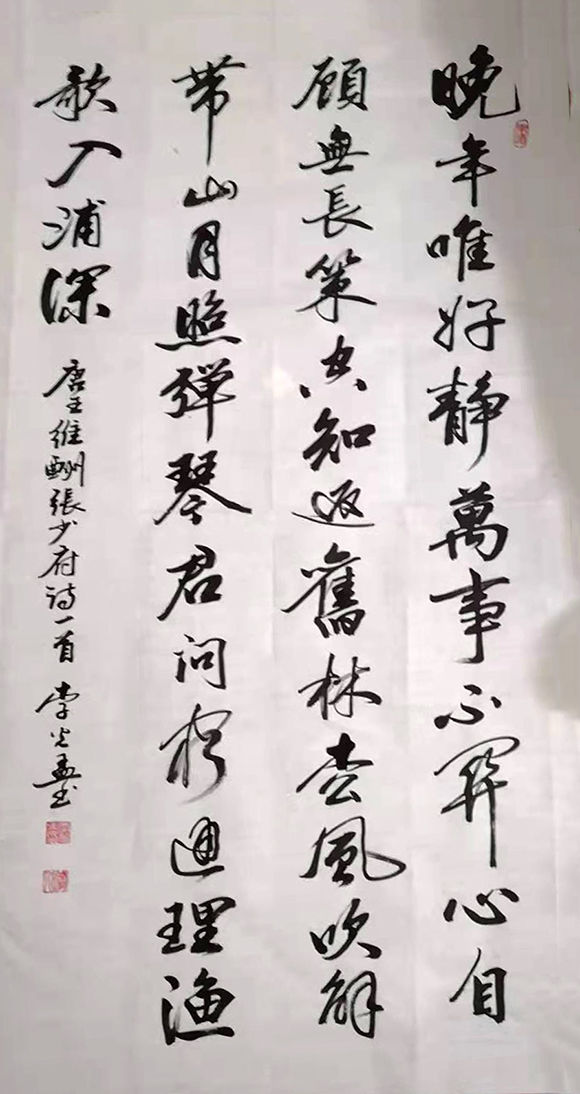 晚年唯好靜萬事不関心自
顧無長策空知返舊林松風吹解
帶山月照弹琴君问窮通理漁
歌入浦深
唐王維酬張少府诗一首 李光孟书